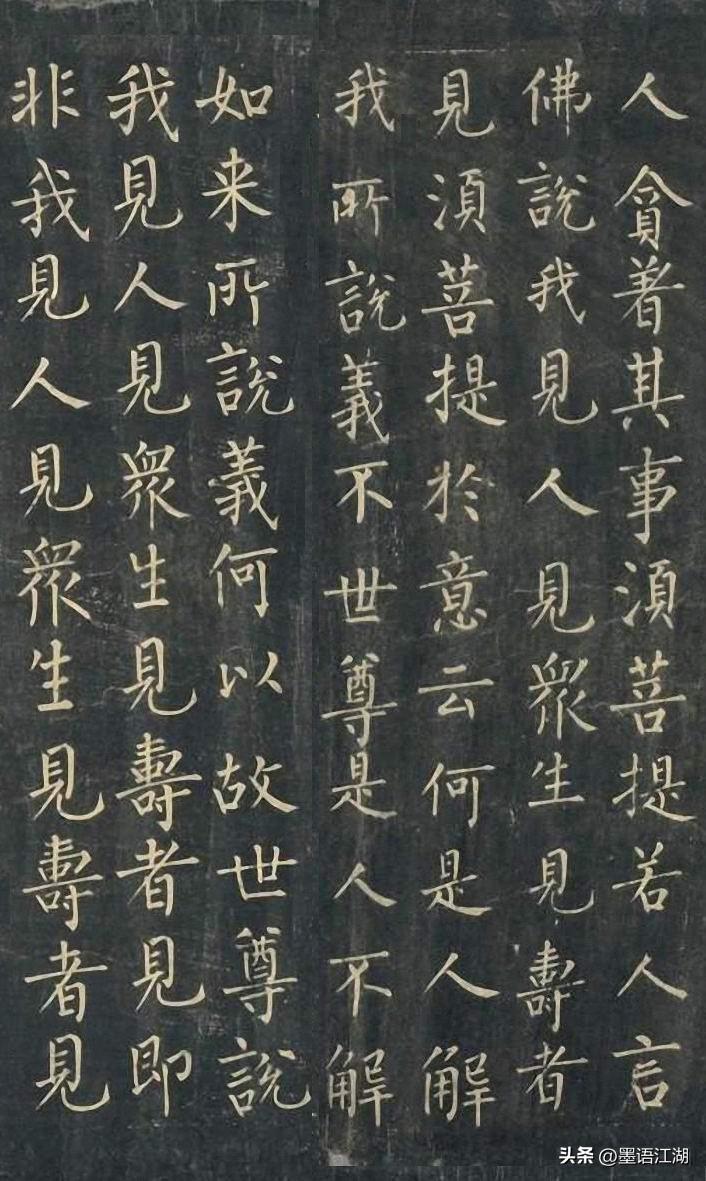 人貪着其事須菩提若人言
佛說我見人見衆生見壽者
見須菩提於意云何是人解
我所說義不世尊是人不解
如来所說義何以故世尊說
我見人見衆生見壽者見即
非我見人見衆生見壽者見
头条 @墨语江湖